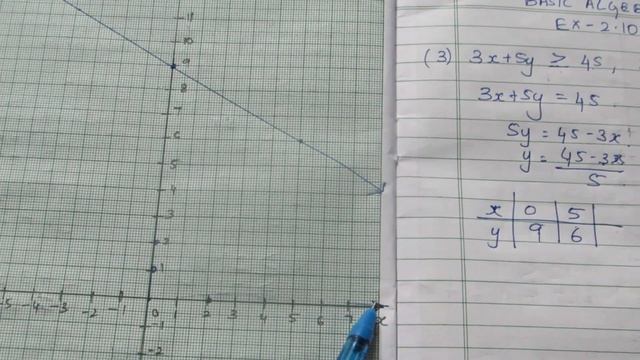 BASIC ALGEB
EX-2.10
(3) 3x+5y ≥ 45,
3x+5y = 45
5y = 45-3x
y = 45-3x
5
x 0 5
y 9 6
11
10
9
8
6
5
4
3
2
1
-5 -4 -3 -2 -1 0 1 2 3 4 5 6 7 x
-1
-2